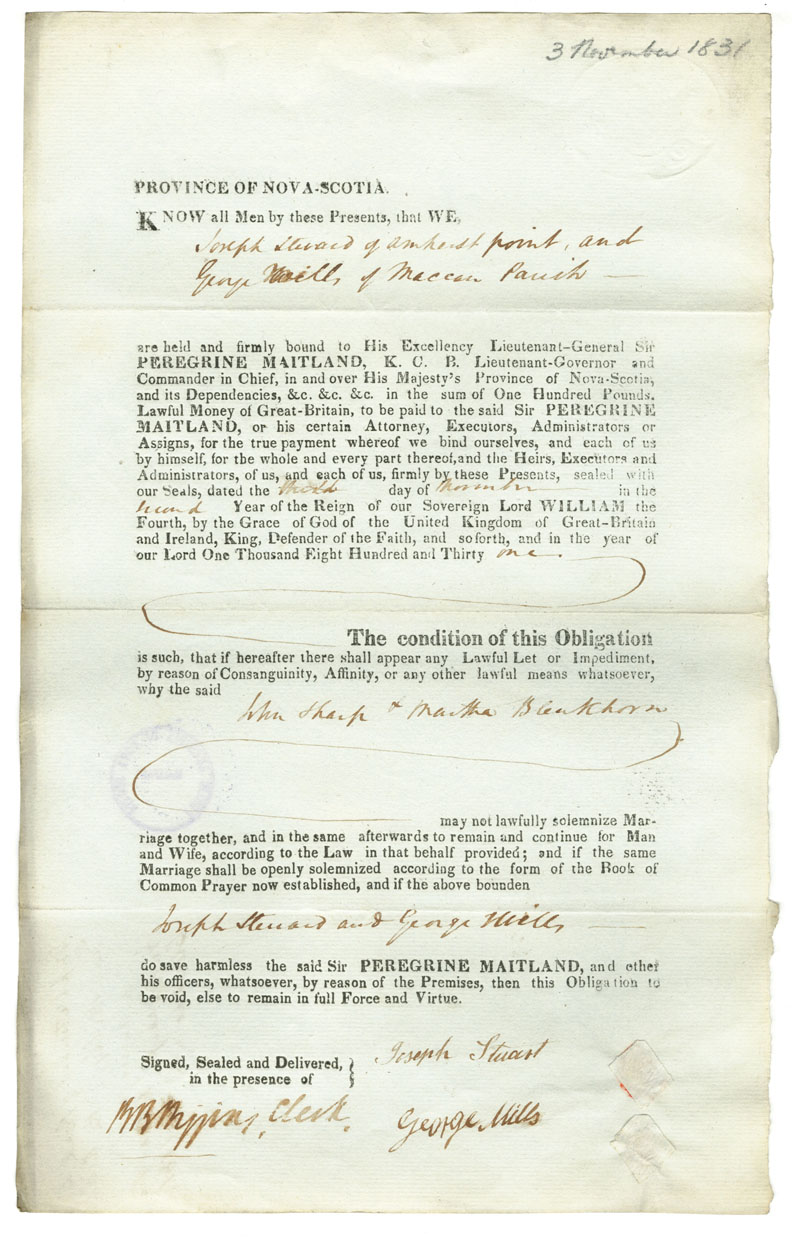 3 November 1831
PROVINCE OF NOVA-SCOTIA.
KNOW all Men by these Presents, that WE,
Joseph Steward of amherst point, and
George Mills of Maccan Parish
are held and firmly bound to His Excellency Lieutenant-General Sir
PEREGRINE MAITLAND, K. C. B. Lieutenant-Governor and
Commander in Chief, in and over His Majesty's Province of Nova-Scotia,
and its Dependencies, &c. &c. &c. in the sum of One Hundred Pounds,
Lawful Money of Great-Britain, to be paid to the said Sir PEREGRINE
MAITLAND, or his certain Attorney, Executors, Administrators or
Assigns, for the true payment whereof we bind ourselves, and each of us
by himself, for the whole and every part thereof, and the Heirs, Executors and
Administrators, of us, and each of us, firmly by these Presents, sealed with
our Seals, dated the third day of November in the
second Year of the Reign of our Sovereign Lord WILLIAM the
Fourth, by the Grace of God of the United Kingdom of Great-Britain
and Ireland, King, Defender of the Faith, and so forth, and in the year of
our Lord One Thousand Eight Hundred and Thirty one.
The condition of this Obligation
is such, that if hereafter there shall appear any Lawful Let or Impediment,
by reason of Consanguinity, Affinity, or any other lawful means whatsoever,
why the said
John Sharp & Martha Blenkhorn
may not lawfully solemnize Mar-
riage together, and in the same afterwards to remain and continue for Man
and Wife, according to the Law in that behalf provided; and if the same
Marriage shall be openly solemnized according to the form of the Book of
Common Prayer now established, and if the above bounden
Joseph Steward and George Mills
do save harmless the said Sir PEREGRINE MAITLAND, and other
his officers, whatsoever, by reason of the Premises, then this Obligation to
be void, else to remain in full Force and Virtue.
Signed, Sealed and Delivered,
in the presence of
Joseph Stuart
Clerk.
George Mills